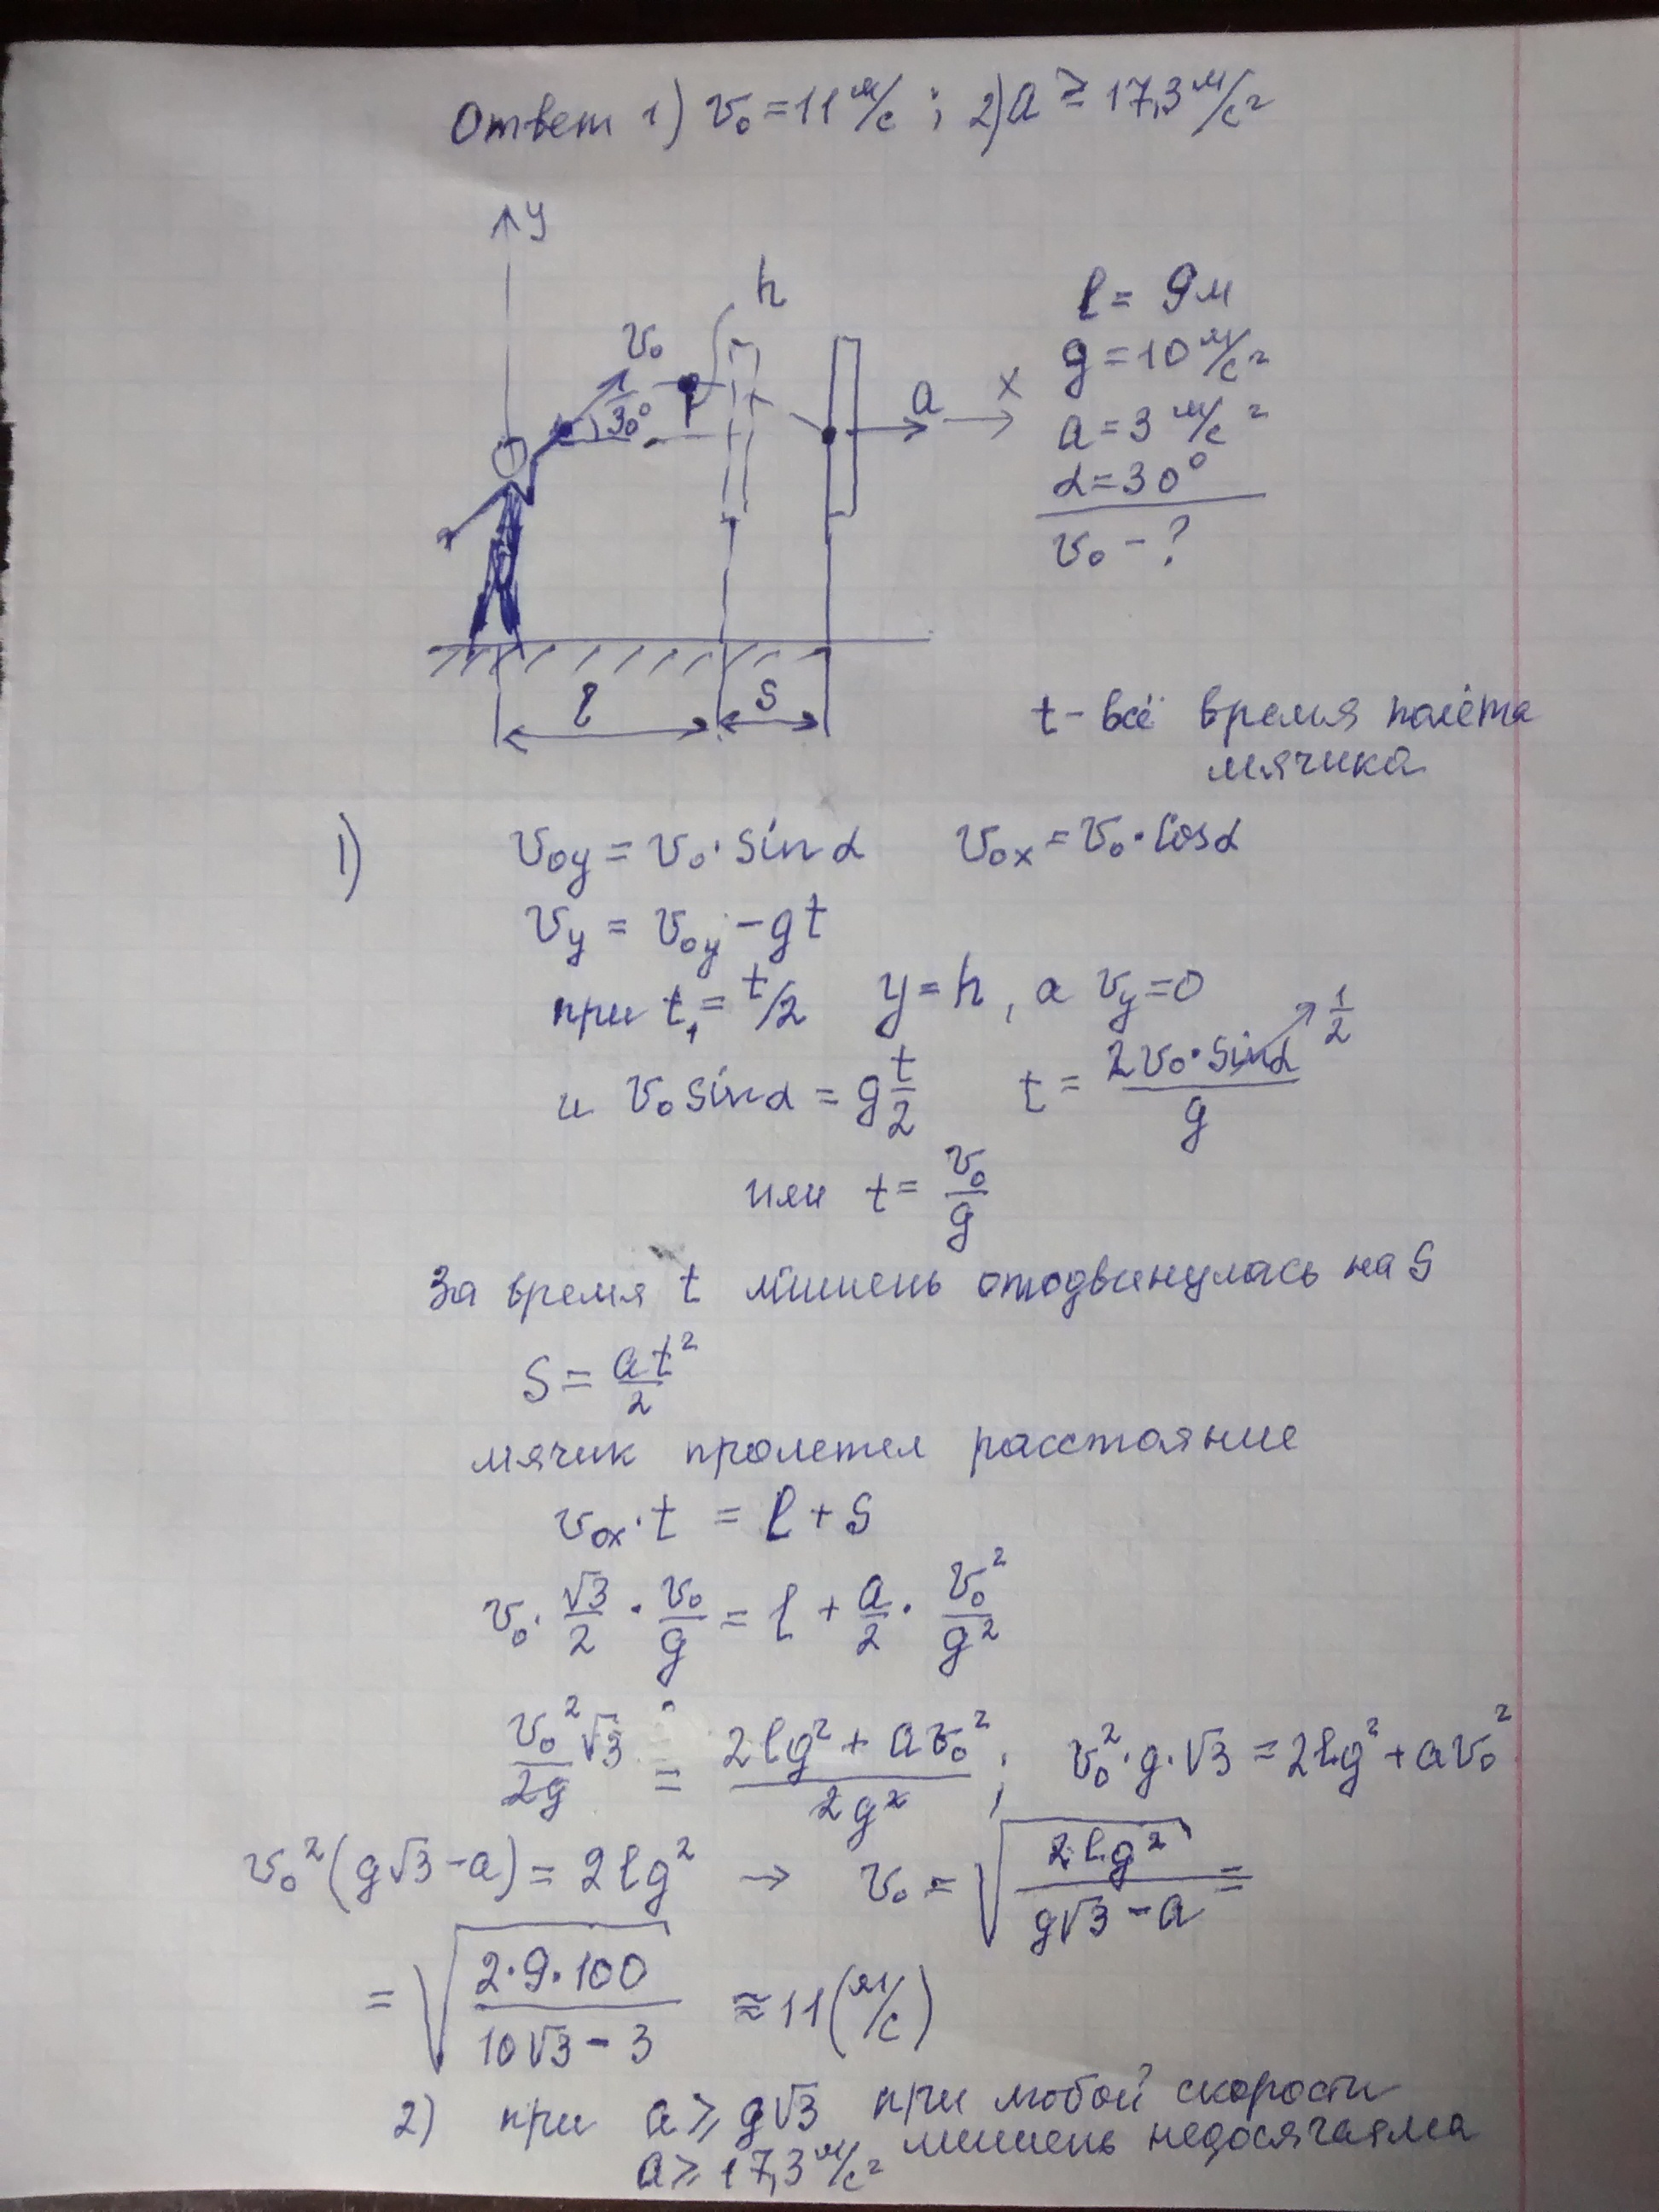 Ответ 1) v₀ = 11 м/с ; 2) a ≥ 17,3 м/с²
y
h
v₀
30°
a
x
l = 9 м
g = 10 м/с²
a = 3 м/с²
α = 30°
v₀ - ?
l
S
t - всё время полёта
мячика
1) v₀y = v₀ · sin α v₀x = v₀ · cos α
vy = v₀y - gt
при t₁ = t/2 y = h, а vy = 0
и v₀ sin α = g t/2 t = 2v₀ · sin α / g → 1/2
или t = v₀/g
За время t мишень отодвинулась на S
S = at²/2
мячик пролетел расстояние
v₀x · t = l + S
v₀ · √3/2 · v₀/g = l + a/2 · v₀²/g²
v₀²√3/2g = (2lg² + av₀²)/2g² ; v₀² · g · √3 = 2lg² + av₀²
v₀²(g√3 - a) = 2lg² → v₀ = √(2lg²/(g√3 - a)) =
= √(2·9·100/(10√3 - 3)) ≈ 11 (м/с)
2) при a ⩾ g√3 при любой скорости
мишень недосягаяма
a ⩾ 17,3 м/с²